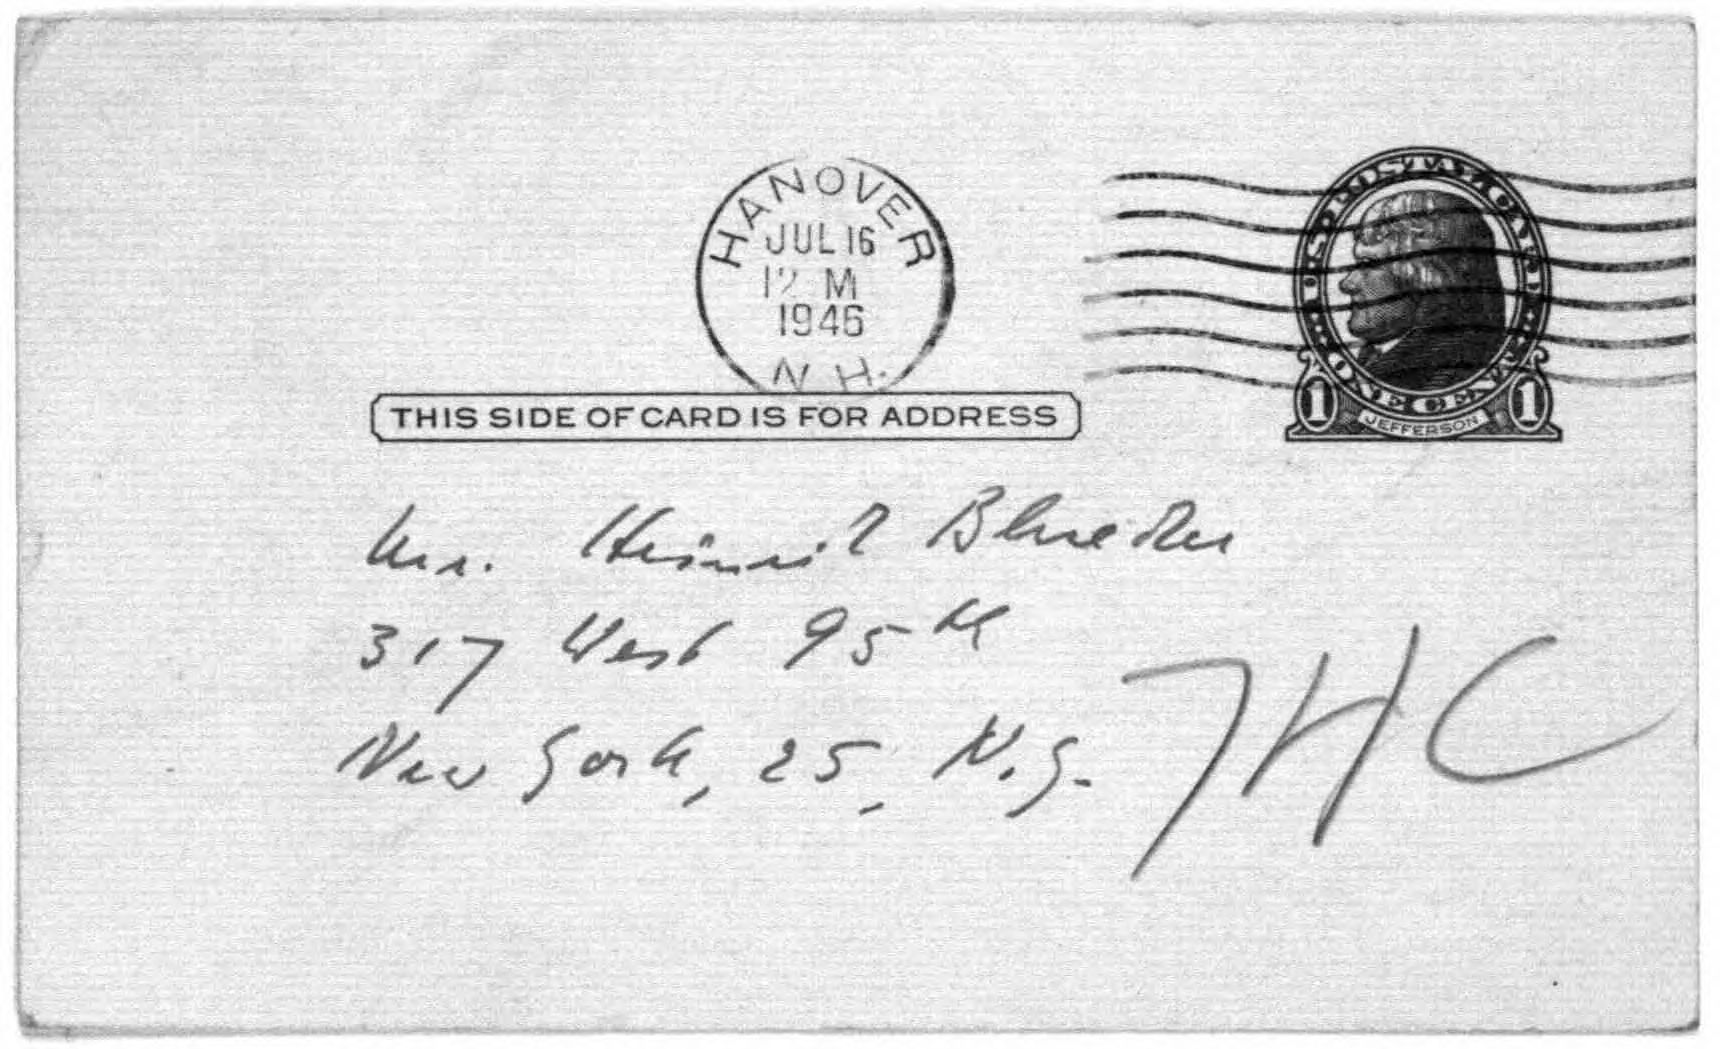 HANOVER
JUL 16
12 M
1946
N.H.
U.S. POSTAGE
ONE CENT
1 JEFFERSON 1
THIS SIDE OF CARD IS FOR ADDRESS
Mr. Heinrich Bluecher
317 West 95th
New York, 25, N.Y.
7HC